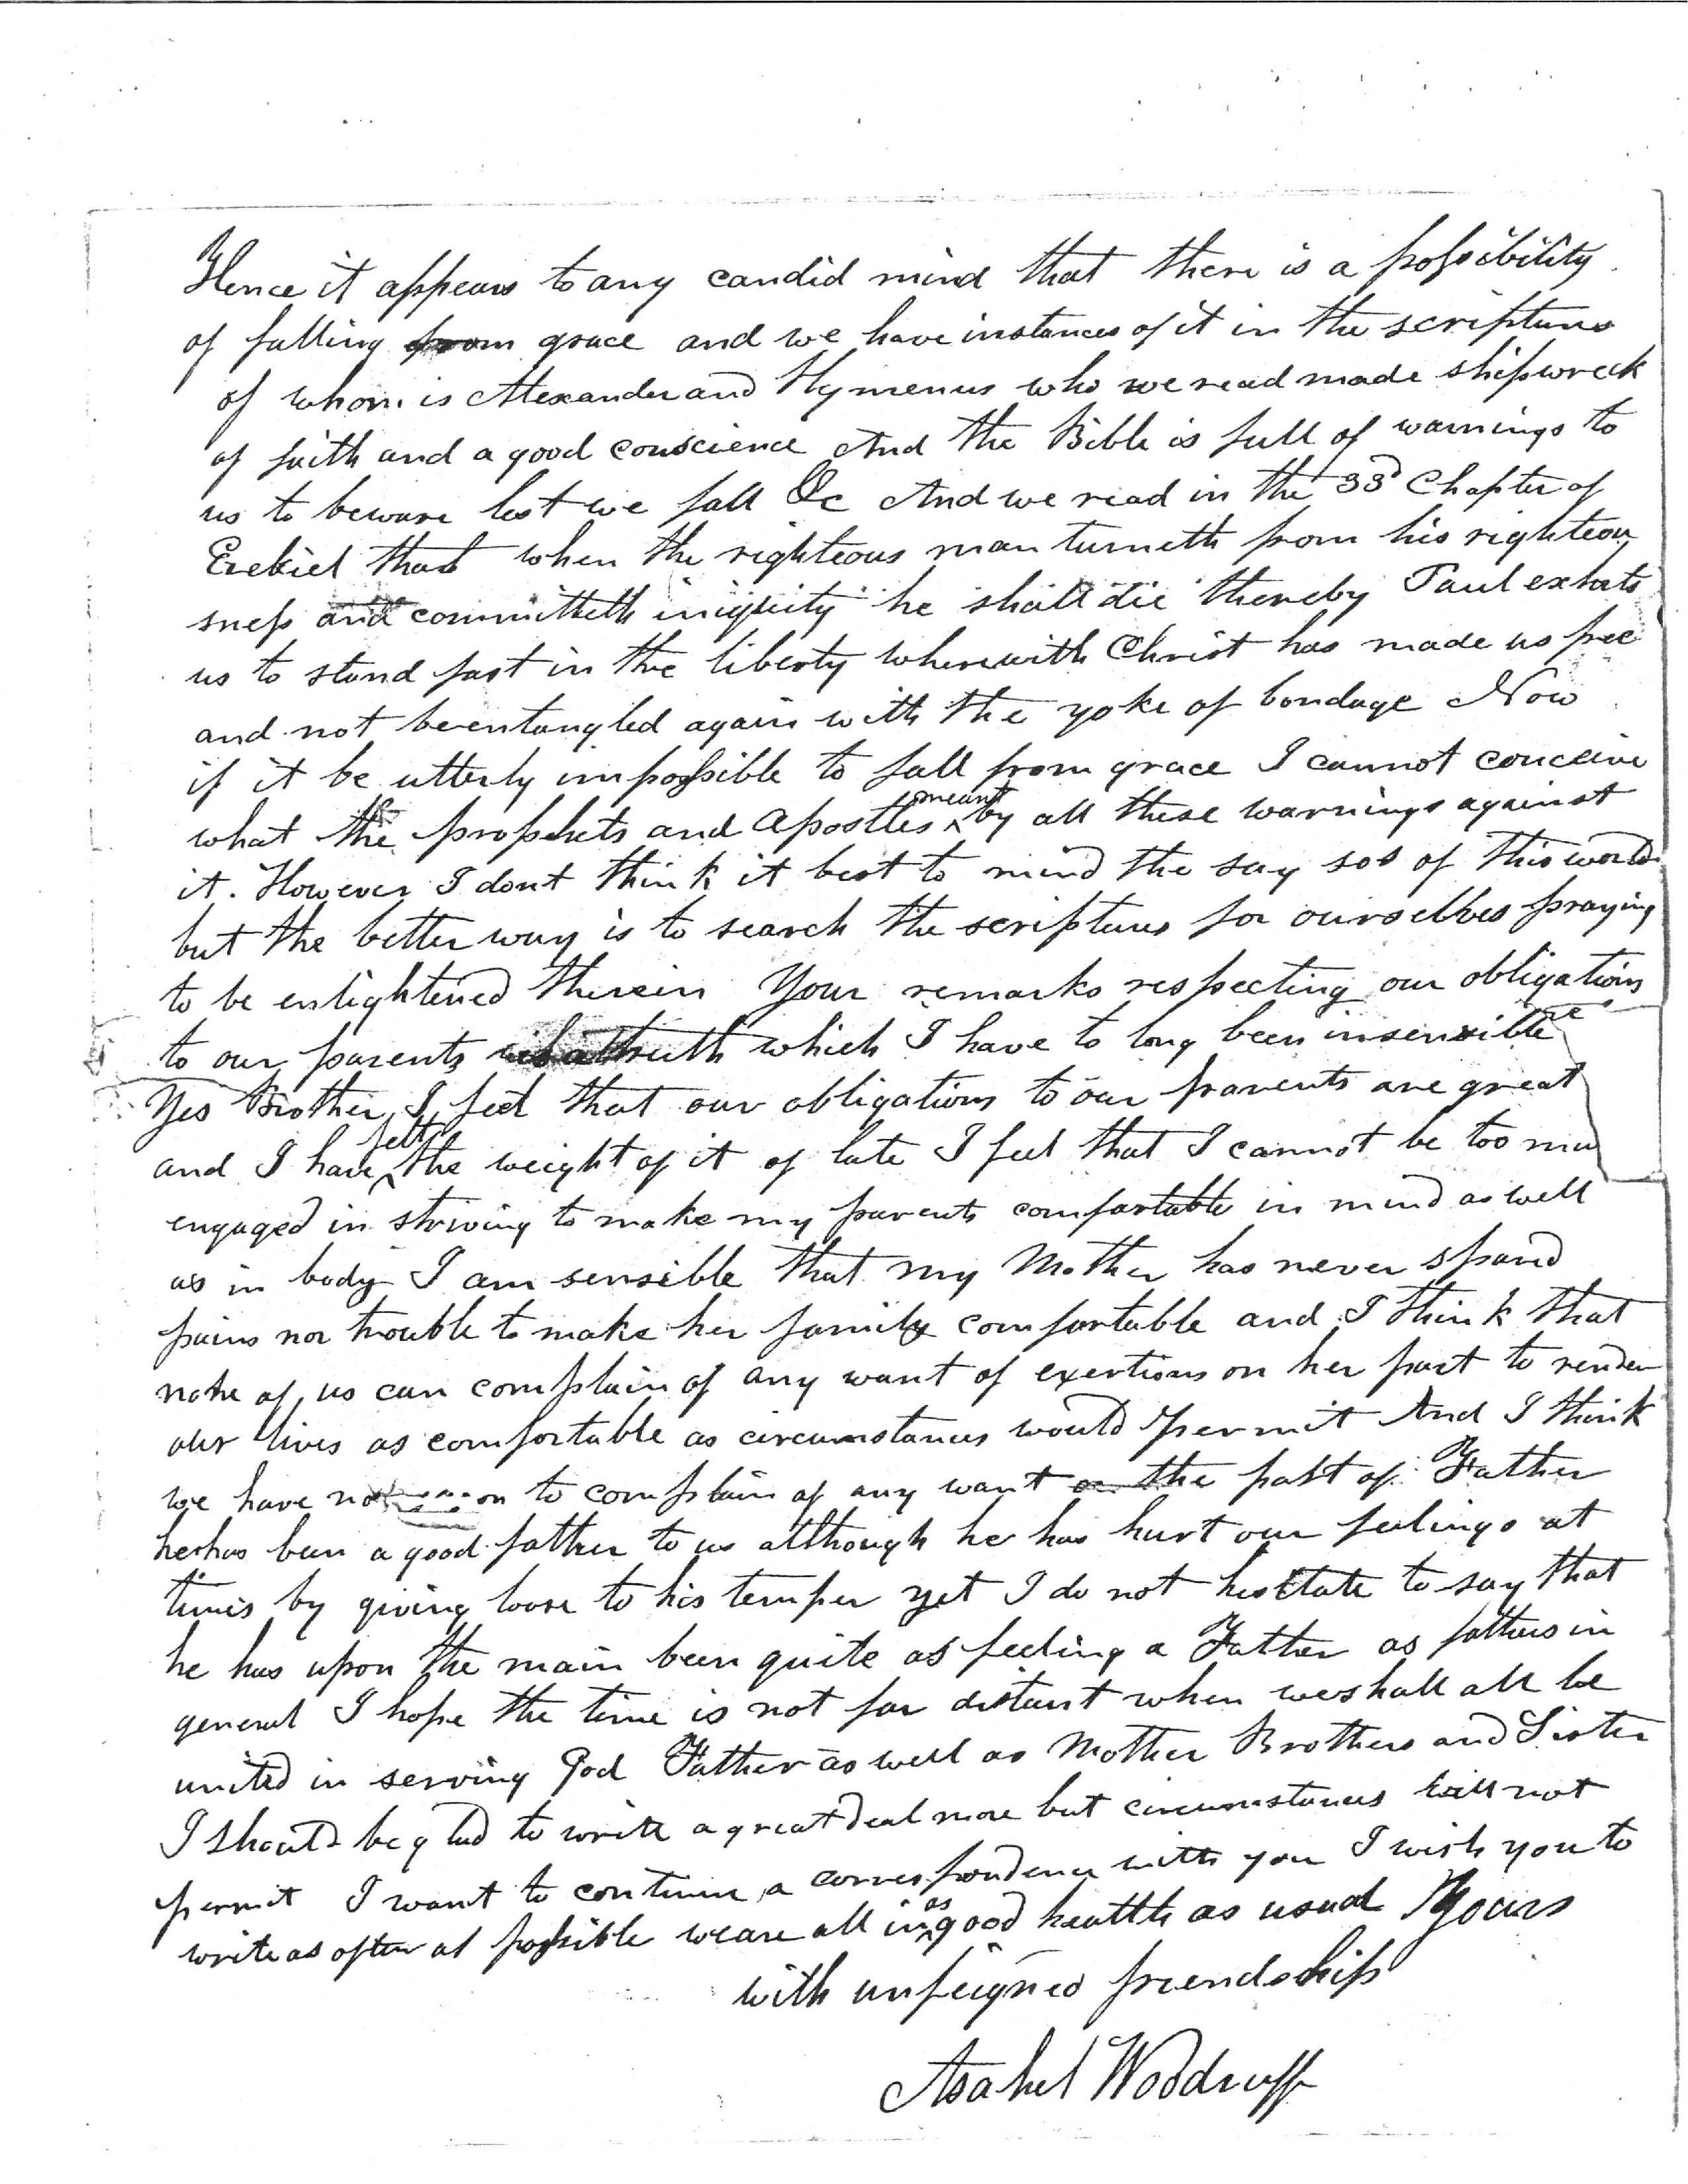 Hence it appears to any candid mind that there is a possibility
of falling from grace and we have instances of it in the scriptures
of whom is Alexander and Hymeneus who we read made shipwreck
of faith and a good conscience And the Bible is full of warnings to
us to beware lest we fall &c And we read in the 33d Chapter of
Ezekiel that when the righteous man turneth from his righteou
sness and committeth iniquity he shall die thereby Paul exhorts
us to stand fast in the liberty wherewith Christ has made us free
and not be entangled again with the yoke of bondage Now
if it be utterly impossible to fall from grace I cannot conceive
what the prophets and apostles meant by all these warnings against
it. However I dont think it best to mind the say sos of this world
but the better way is to search the scriptures for ourselves praying
to be enlightened therein Your remarks respecting our obligations
to our parents is a truth which I have to long been insensible
Yes Brother I feel that our obligations to our parents are great
and I have felt the weight of it of late I feel that I cannot be too mu
engaged in striving to make my parents comfortable in mind as well
as in body I am sensible that my Mother has never spared
pains nor trouble to make her family comfortable and I think that
none of us can complain of any want of exertions on her part to render
our lives as comfortable as circumstances would permit And I think
we have no to complain of any want on the part of Father
he has been a good father to us although he has hurt our feelings at
times by giving loose to his temper yet I do not hesitate to say that
he has upon the main been quite as feeling a Father as fathers in
general I hope the time is not far distant when we shall all be
united in serving God Father as well as Mother Brothers and Sister
I should be glad to write a great deal more but circumstances will not
permit I want to continue a correspondence with you I wish you to
write as often as possible we are all in as good health as usual Yours
with unfeigned friendship
Asahel Woodruff